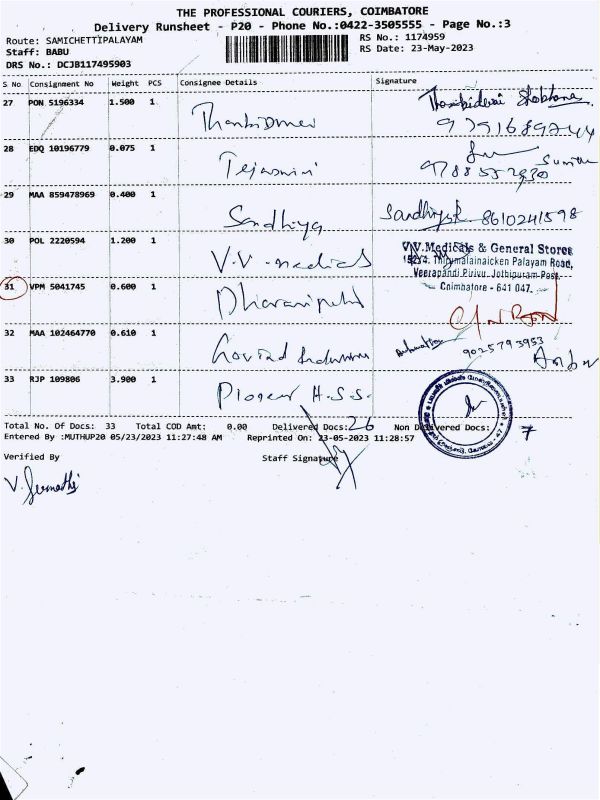 THE PROFESSIONAL COURIERS, COIMBATORE
Delivery Runsheet - P20 - Phone No.:0422-3505555 - Page No.:3
Route: SAMICHETTIPALAYAM
RS No.: 1174959
Staff: BABU
RS Date: 23-May-2023
DRS No.: DCJB117495903
S No Consignment No Weight PCS Consignee Details Signature
27 PON 5196334 1.500 1
28 EDQ 10196779 0.075 1 Tejaswini
29 MAA 859478969 0.400 1 Sandhiya 8610241598
30 POL 2220594 1.200 1 V.V. medicals
V.V.Medicals & General Stores
Thirumalainaicken Palayam Road,
Veerapandi Pirivu, Jothipuram Post,
Coimbatore - 641 047.
31 VPM 5041745 0.600 1
32 MAA 102464770 0.610 1 Govind 9025793953
33 RJP 109806 3.900 1 H.S.S.
Total No. Of Docs: 33 Total COD Amt: 0.00 Delivered Docs: 26 Non Delivered Docs: 7
Entered By :MUTHUP20 05/23/2023 11:27:48 AM Reprinted On: 23-05-2023 11:28:57
Verified By Staff Signature